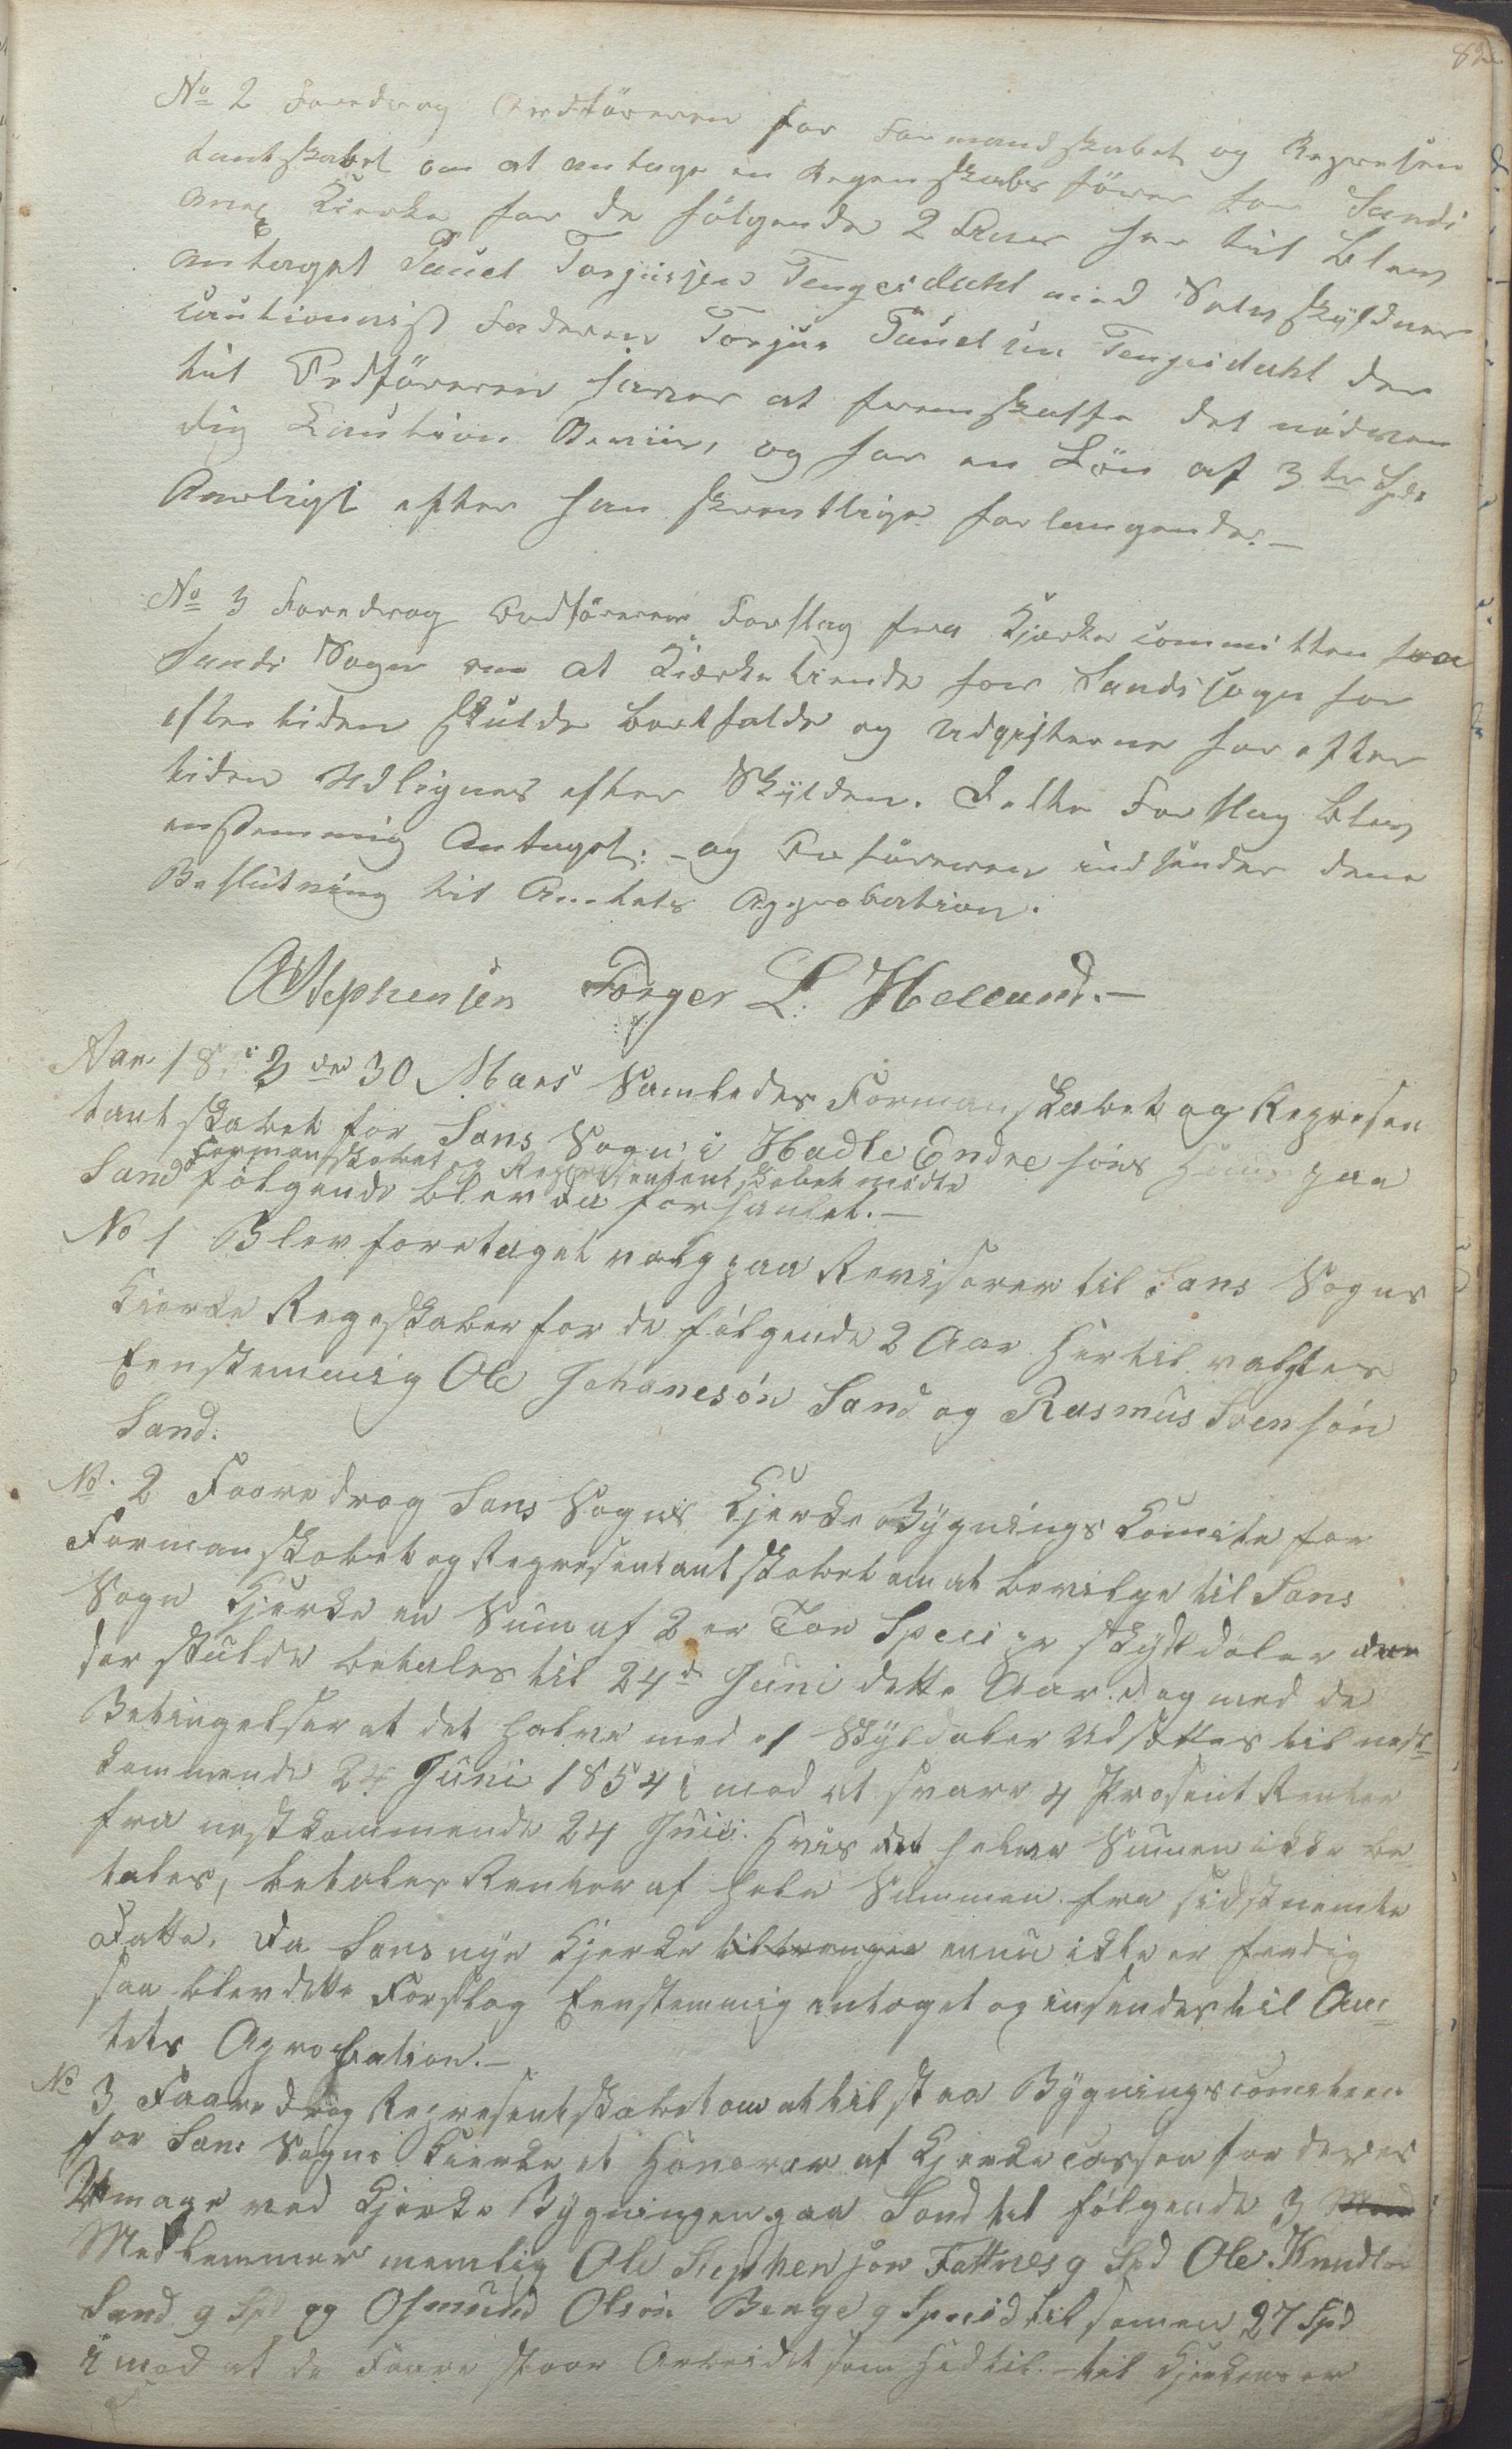 82
No 2 Foredrog Ordføreren for Formandskabet og Represen
tantskabet om at antage en Regenskabs fører for Sands
Anex Kierke for de følgende 2 Aar her til blev
Antaget Poul Torjusen Tengesdahl med Selvskyldner
Cautionist Faderen Torjus Poulsen Tengesdahl der
til Ordføreren haver at fremskaffe det nødven
dig Caution Beviis, og for en Løn af 3 tre Spd
Aarligt efter han skrevtlige forlangende. —
No 3 Foredrog Ordføreren Forslag fra Kjerke committen fra
Sands Sogn om at Kierketiende for Sands sogn for
eftertiden skulde bortfalde og Udgifterne for efter
tiden Udlignes efter Skylden. Dette Forslag blev
enstemmig Antaget: - og Orføreren indsender dene
Beslutning til Amtets Approbation.
AStephensen Torger L. Helland. —
Aar 1853 den 30 Mars Samledes Formanskabet og Represen
tantskabet for Sans Sogn i Hadle Endresøns Huus paa
Formanskabet og Representantskabet mødte
Sand følgende blev da forhanlet. —
No 1 Blev foretaget valg paa Revisorer til Sans Sogns
Kierke Regeskaber for de følgende 2 Aar Hertil valgtes
Eenstemmig Ole Johanesøn Sand og Rasmus Svensøn
Sand.
No. 2 Faaredrog Sans Sogns Kjerke Bygnings Komite for
Formanskabet og Representantskabet om at bevilge til Sans
Sogn Kjerke en Sum af 2 er Too Speci pr skylddaler der
der skulde betales til 24d Juni dette Aar. dog med de
Betingelser at det halve med 1 Skyldaler Udsettes til nest-
kommende 24 Juni 1854 i mod at svare 4 Prosent Renter
fra nestkommende 24 Juni. Hvis det halve Sumen ikke be
tales, betales Renter af hele Summen fra sidstnemte
Datto. Da Sans nye Kjerke tiltrenger ennu ikke er ferdig
saa blev dette Forslag Eenstemmig antaget og insendes til Am-
tets Aprobation. —
No 3 Faaredrog Representskabet om at tilstaa Bygningscomiteen
for Sans Sogns Kierke et Honorar af Kjerke cassen for deres
Umage ved Kjerke Bygningen paa Sand til følgende 3 Med
Medlemmer nemlig Ole Stephensøn Fattnes 9 Spd Ole Knudsøn
Sand 9 Spd og Osmund Olsøn Berge 9 Specid tilsamen 27 Spd
i mod at de Faare staar Arbeidet som Hidtil - til Kjerken er